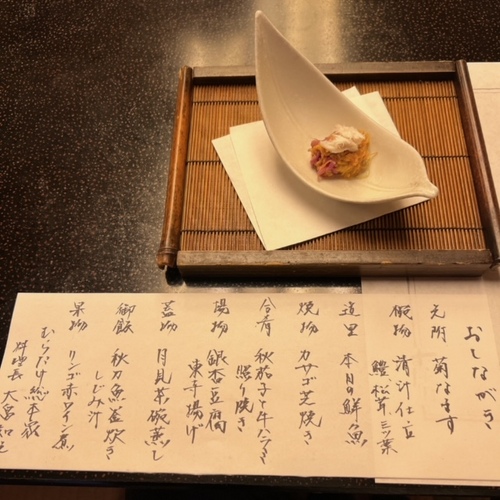 おしながき
先附 菊なます
椀物 清汁仕立
鱧 松茸 三ツ葉
造里 本日の鮮魚
焼物 カサゴ芝焼き
合肴 秋茄子と牛ハラミ
照り焼き
揚物 銀杏豆腐
東寺揚げ
蓋物 月見茶碗蒸し
御飯 秋刀魚釜炊き
しじみ汁
果物 リンゴ赤ワイン煮
むらたけ総本家
料理長 大